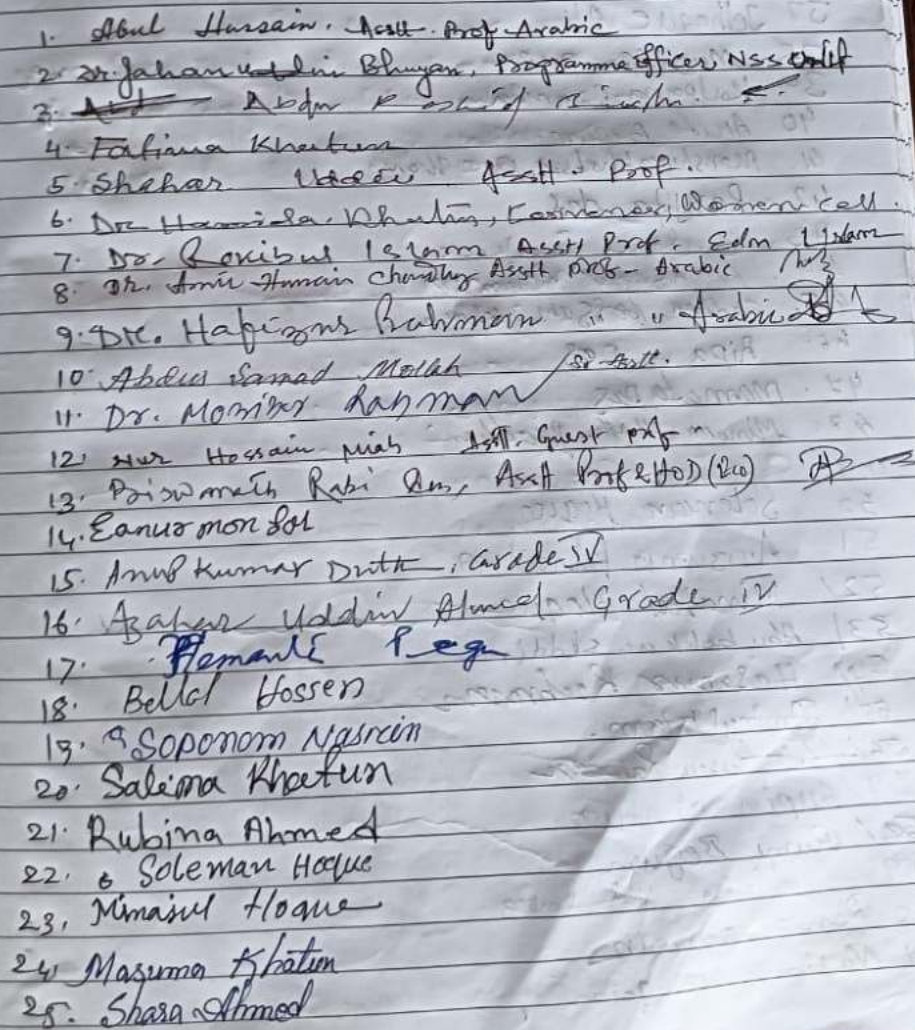 1. Abul Hussain. Asstt. Prof. Arabic
2. Dr. Jahan Uddin Bhuyan, Programme Officer, NSS Unit
3. Abdur Rashid
4. Fatima Khatun
5. Shahar Uddin Asstt. Prof.
6. Dr. Hamida Khatun, Convenor, Women cell.
7. Dr. Rakibul Islam Asstt Prof. Edn
8. Dr. Amir Hussain Choudhury Asstt Prof - Arabic
9. Dr. Hafizur Rahman " " Arabic
10. Abdus Samad Mollah Sr. Asstt.
11. Dr. Monisur Rahman
12. Nur Hossain Miah Asstt. Guest prof
13. Biswanath Rabi Das, Asstt Prof & HOD (Eco)
14. Eanur mondol
15. Anup Kumar Dutta, Grade IV
16. Azahar Uddin Ahmed Grade IV
17. Hemanta Pegu
18. Bellal Hossen
19. Soponom Nasrein
20. Salema Khatun
21. Rubina Ahmed
22. Soleman Hoque
23. Minajul Hoque
24. Masuma Khatun
25. Shara Ahmed